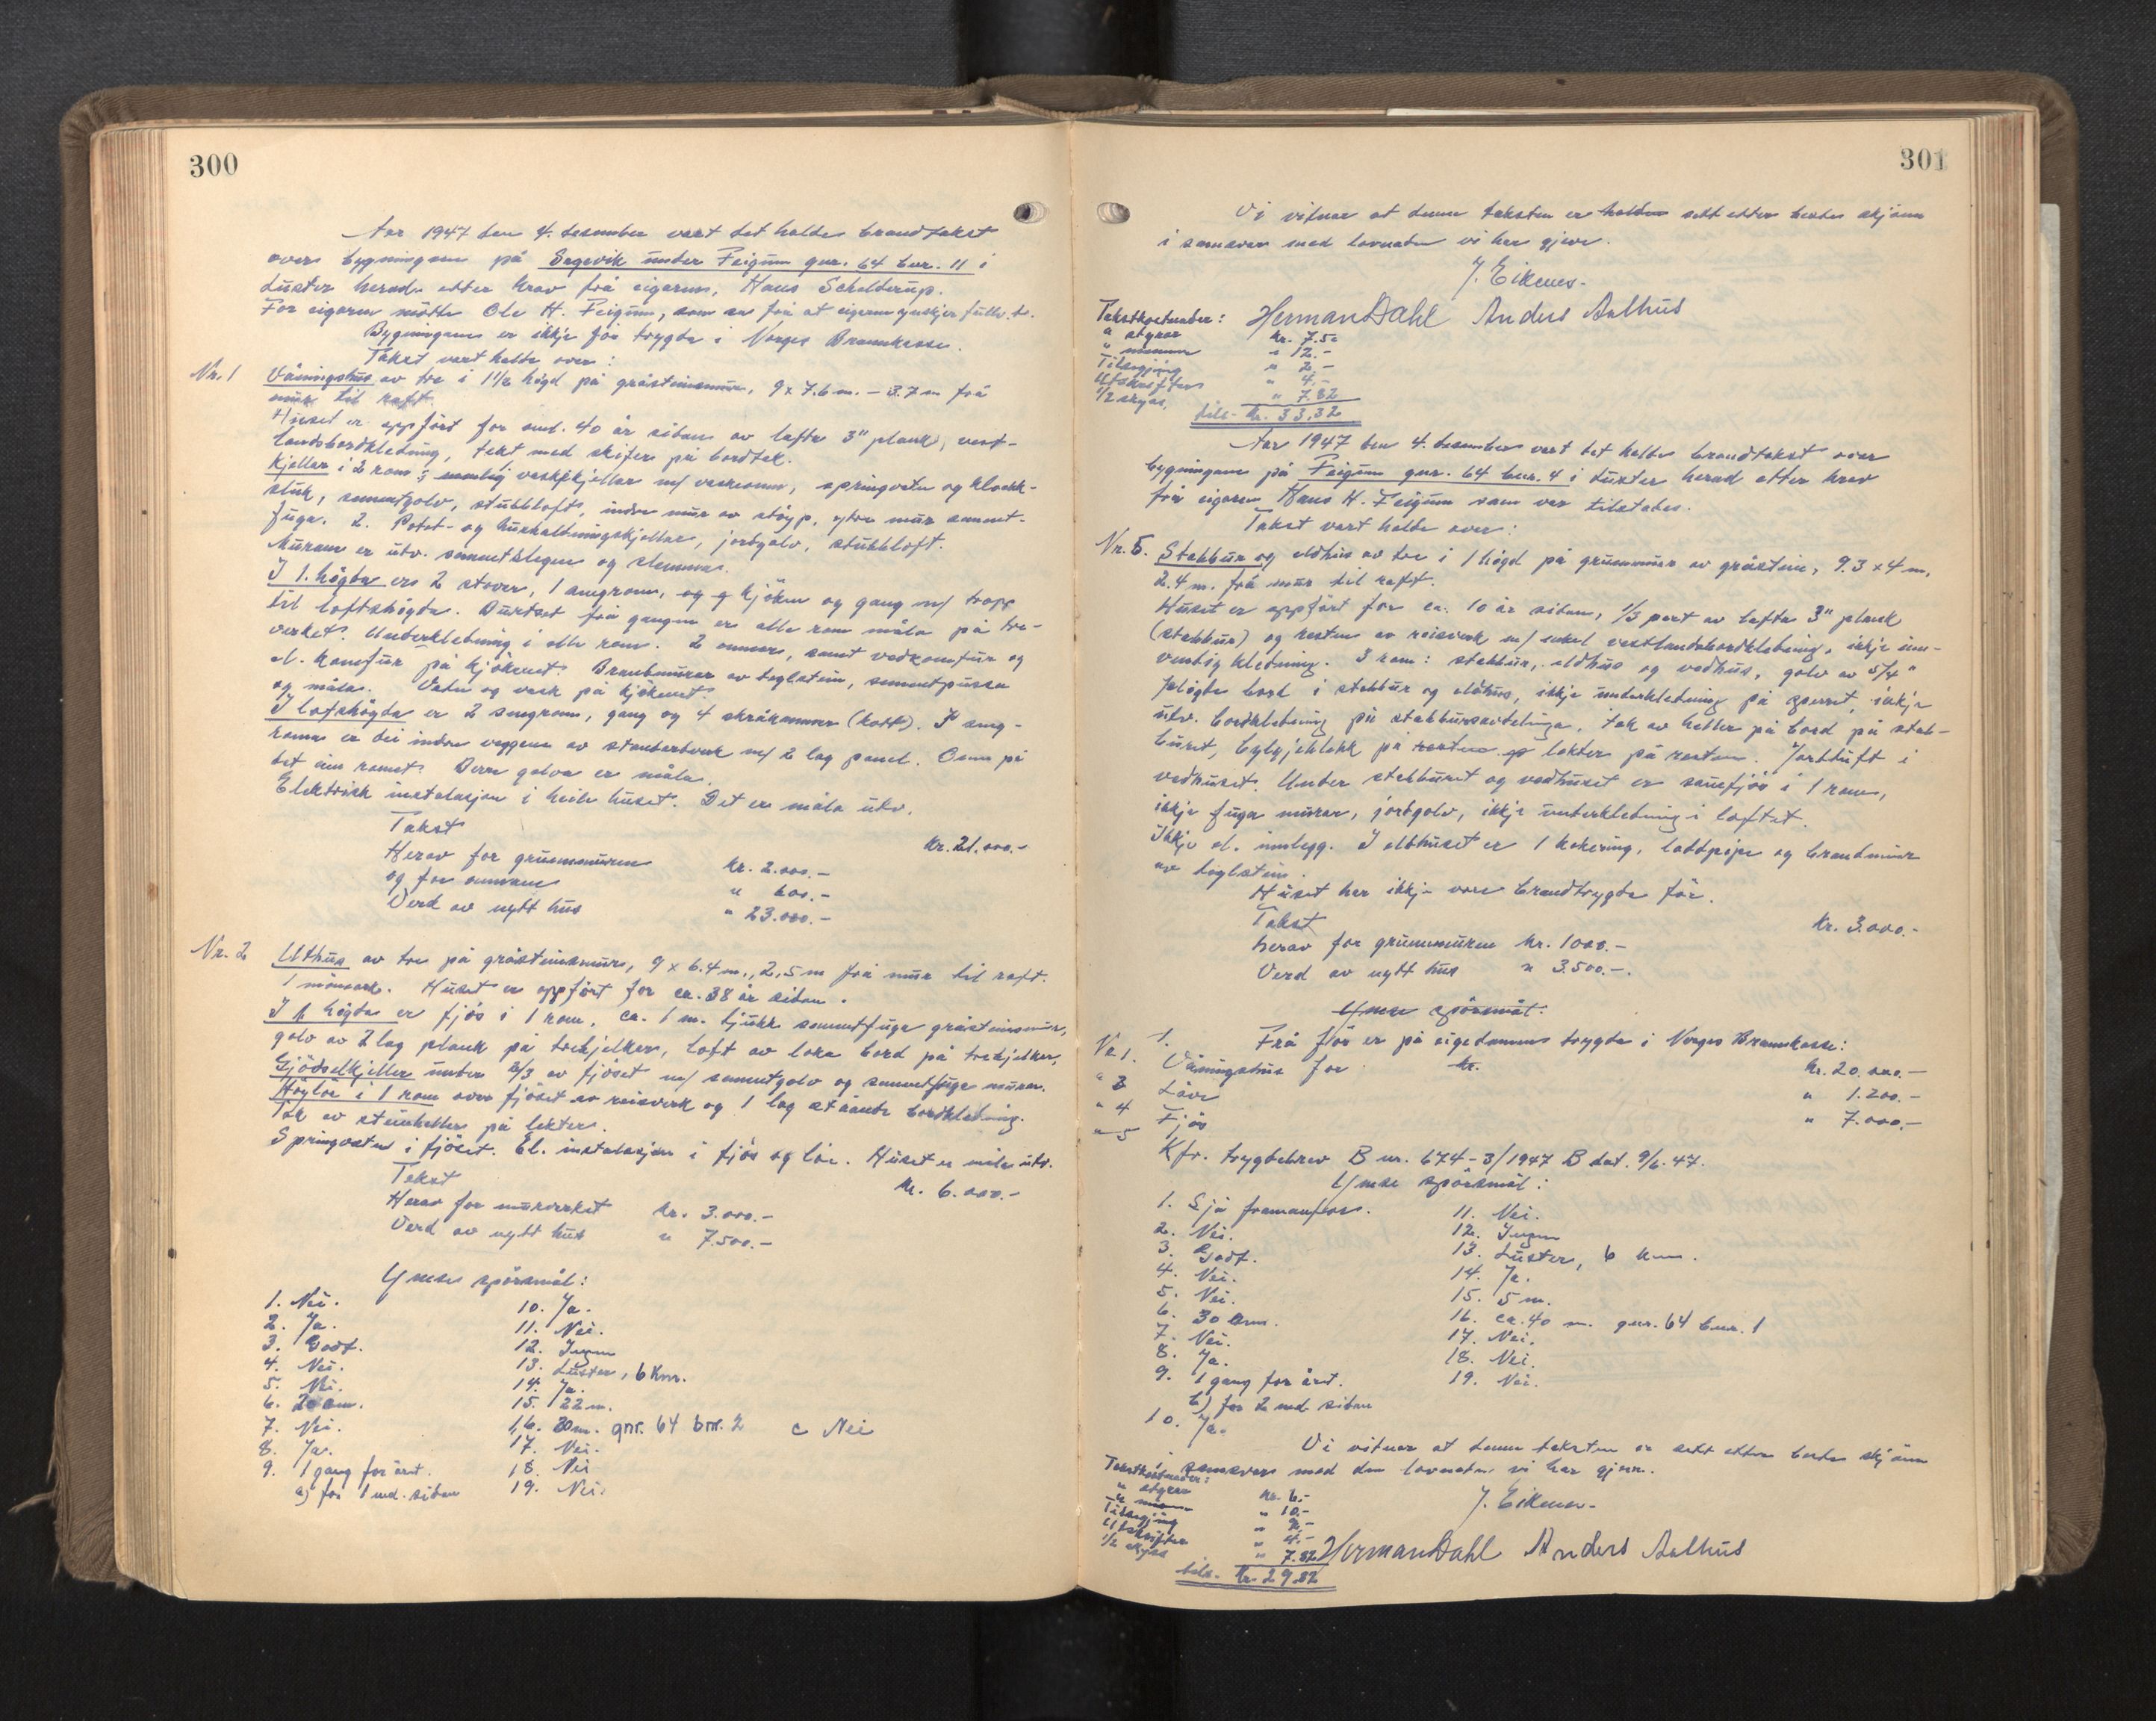 300
Aar 1947 den 4. desember vart det halde brandtakst
over bygningane på Segevik under Feigum gnr. 64 bnr. 11 i
Luster herad etter krav frå eigaren, Hans Schelderup.
For eigaren møtte Ole H. Feigum, som sa frå at eigaren ynskjer fullv.tr.
Bygningane er ikkje før trygda i Norges Brannkasse.
Takst vart halde over:
Nr. 1 Våningshus av tre i 1 1/2 högd på gråsteinsmur, 9 x 7.6 m. – 3.7 m frå
mur til raft.
Huset er oppfört for oml. 40 år sidan av lafta 3" plank, vest-
landsbordkledning, tekt med skifer på bordtak.
Kjellar i 2 rom: vaskekjellar m/ vaskeomn, springvatn og kloakk-
sluk, sementgolv, stubbloft, indre mur av støyp, ytre mur sement-
fuga. 2. Potet- og hushaldningskjellar, jordgolv, stubbloft.
Murane er utv. sementslegne og slemma.
I 1. högda er 2 stover, 1 sengrom, kjöken og gang m/ tropp
til loftshögda. Burtset frå gangen er alle rom måla på tre-
verket. Underkledning i alle rom. 2 omnar, samt vedkomfur og
el. komfyr på kjökenet. Brandmurar av teglstein, sementpussa
og måla. Vatn og vask på kjökenet.
I loftshögda er 2 sengrom, gang og 4 skråkammer (kott). I seng-
roma er dei indre veggene av standardverk m/ 2 lag panel. Omn på
det eine romet. Berre golva er måla.
Elektrisk installasjon i heile huset. Det er måla utv.
Takst kr. 21.000.-
Herav for grunnmuren kr. 2.000.-
og for omnane " 600.-
Verd av nytt hus " 23.000.-
Nr. 2 Uthus av tre på gråsteinsmur, 9 x 6.4 m., 2,5 m frå mur til raft.
1 mönsark. Huset er oppfört for ca. 38 år sidan.
I 1. högda er fjös i 1 rom, ca. 1 m. tjukk sementfuga gråsteinsmur,
golv av 2 lag plank på trebjelker, loft av løse bord på trebjelker,
Gjödselkjellar under 2/3 av fjöset m/ sementgolv og sementfuga murar.
Höyløe i 1 rom over fjöset av reisverk og 1 lag ståande bordkledning.
Tak av steinheller på lekter.
Springvatn i fjöset. El. installasjon i fjös og löe. Huset er måla utv.
Takst kr. 6.000.-
Herav for murverket kr. 3.000.-
Verd av nytt hus " 7.500.-
Ymse spörsmål:
1. Nei. 10. Ja.
2. Ja. 11. Nei.
3. Godt. 12. Ingen
4. Nei. 13. Luster, 6 km.
5. Nei. 14. Ja.
6. 20 cm. 15. 22 m.
7. Nei. 16. 20 m. gnr. 64 bnr. 2 c Nei
8. Ja. 17. Nei.
9. 1 gang for året. 18. Nei
a) for 1 md. sidan 19. Nei.
301
Vi vitnar at denne taksten er sett etter beste skjönn
i samsvar med lovnaden vi har gjeve.
J. Eikenes.
Herman Dahl Anders Aalhus
Takstkostnader:
" styrar kr. 7.50
" menn " 12.-
Tilseging " 2.-
Utskrifter " 4.-
1/2 skyss, " 7.82
tils. kr. 33.32
Aar 1947 den 4. desember vart det halde brandtakst over
bygningane på Feigum gnr. 64 bnr. 4 i Luster herad etter krav
frå eigaren Hans H. Feigum som var tilstades.
Takst vart halde over:
Nr. 5. Stabbur og eldhus av tre i 1 högd på grunnmur av gråstein, 9.3 x 4 m,
2.4 m. frå mur til raft.
Huset er oppfört for ca. 10 år sidan, 1/3 part av lafta 3" plank
(stabbur) og resten av reisverk m/ enkel vestlandsbordkledning, ikkje inn-
vendig kledning. 3 rom: stabbur, eldhus og vedhus, golv av 5/4"
plögde bord i stabbur og eldhus, ikkje underkledning på sperret, ikkje
utv. bordkledning på stabbursavdelinga, tak av heller på bord på stab-
buret, bylgjeblekk på lekter på resten. Jordtuft i
vedhuset. Under stabburet og vedhuset er sauefjös i 1 rom,
ikkje fuga murar, jordgolv, ikkje underkledning i loftet.
Ikkje el. innlegg. I eldhuset er 1 kokering, laddpipe og brandmur
av teglstein.
Huset har ikkje vore brandtrygda för.
Takst kr. 3.000.-
herav for grunnmuren kr. 1000.-
Verd av nytt hus " 3.500.-.
Ymse spörsmål:
1. Frå för er på eigedomen trygda i Norges Brannkasse:
Nr. 1. Våningshus for kr. kr. 20.000.-
" 3 Löve " 1.200.-
" 4 Fjös " 7.000.-
" 5
Kfr. trygdebrev B nr. 674-3/1947 B dat. 9/6.47.
Ymse spörsmål:
1. Sjå framanfor. 11. Nei.
2. Nei. 12. Ingen
3. Godt. 13. Luster, 6 km.
4. Nei. 14. Ja.
5. Nei. 15. 5 m.
6. 30 cm. 16. ca. 40 m. gnr. 64 bnr. 1
7. Nei. 17. Nei.
8. Ja. 18. Nei.
9. 1 gang for året. 19. Nei.
b) for 2 md. sidan
10. Ja.
Vi vitnar at denne taksten er sett etter beste skjönn
i samsvar med den lovnaden vi har gjeve.
J. Eikenes.
Herman Dahl Anders Aalhus
Takstkostnader:
" styrar kr. 6.-
" menn " 10.-
Tilseging " 2.-
Utskrifter " 4.-
1/2 skyss " 7.82
tils. kr. 29.82